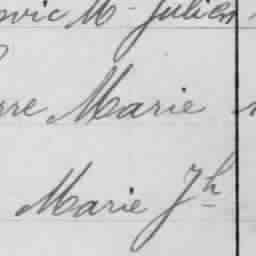 ovic M- Julien
rre Marie
Marie Jh